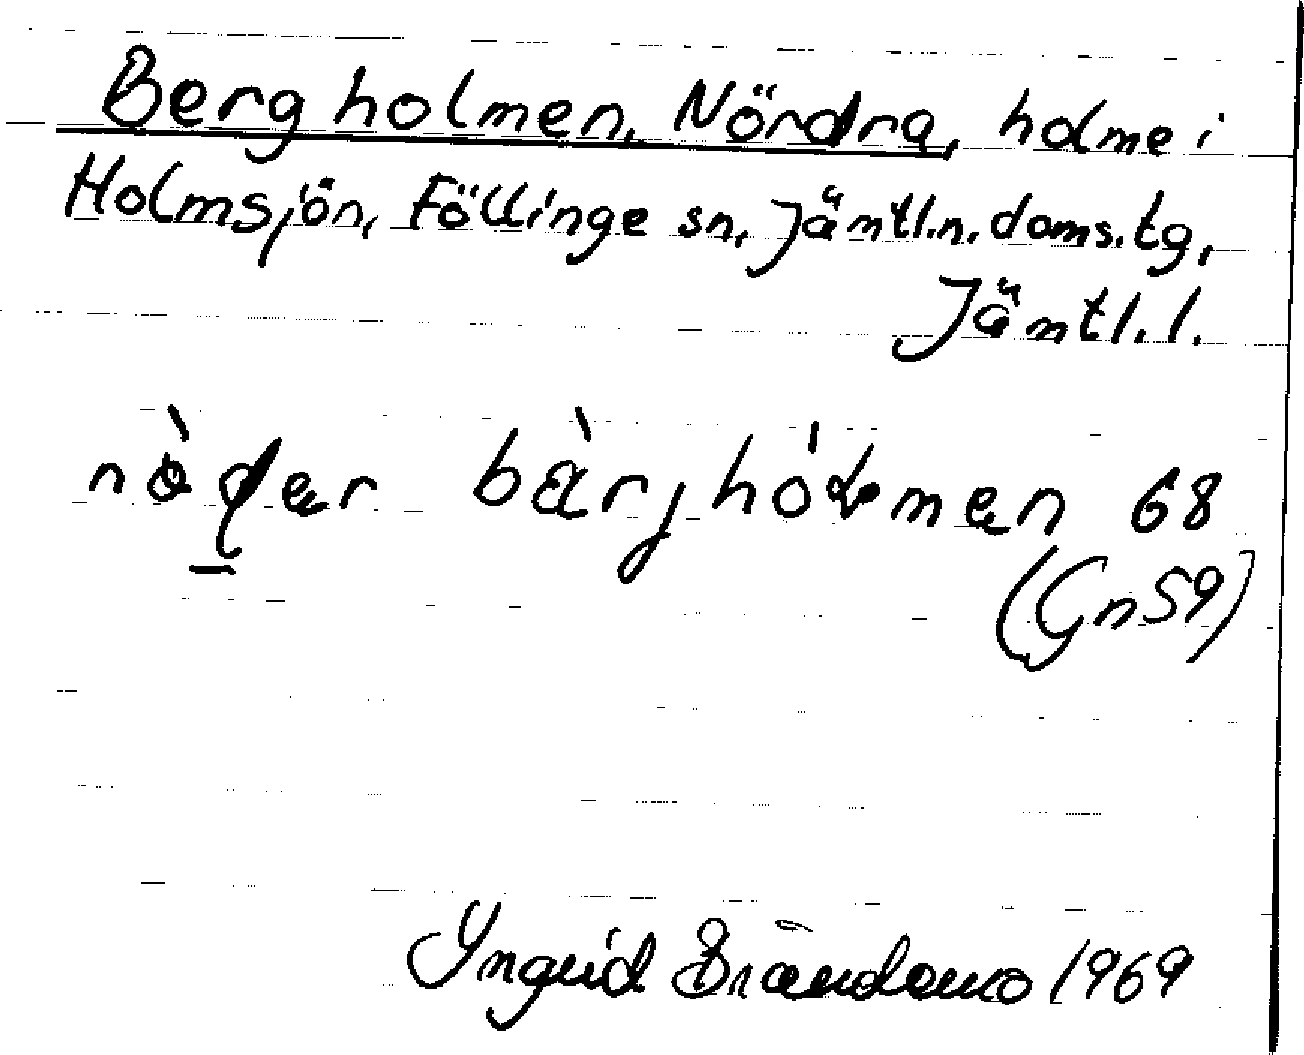 Bergholmen, Nördra, holme i
Holmsjön, Föllinge sn, Jämtl.n.doms.tg,
Jämtl.l.
bàrjhóɫmen 68
(Gn59)
Yngrid 1969